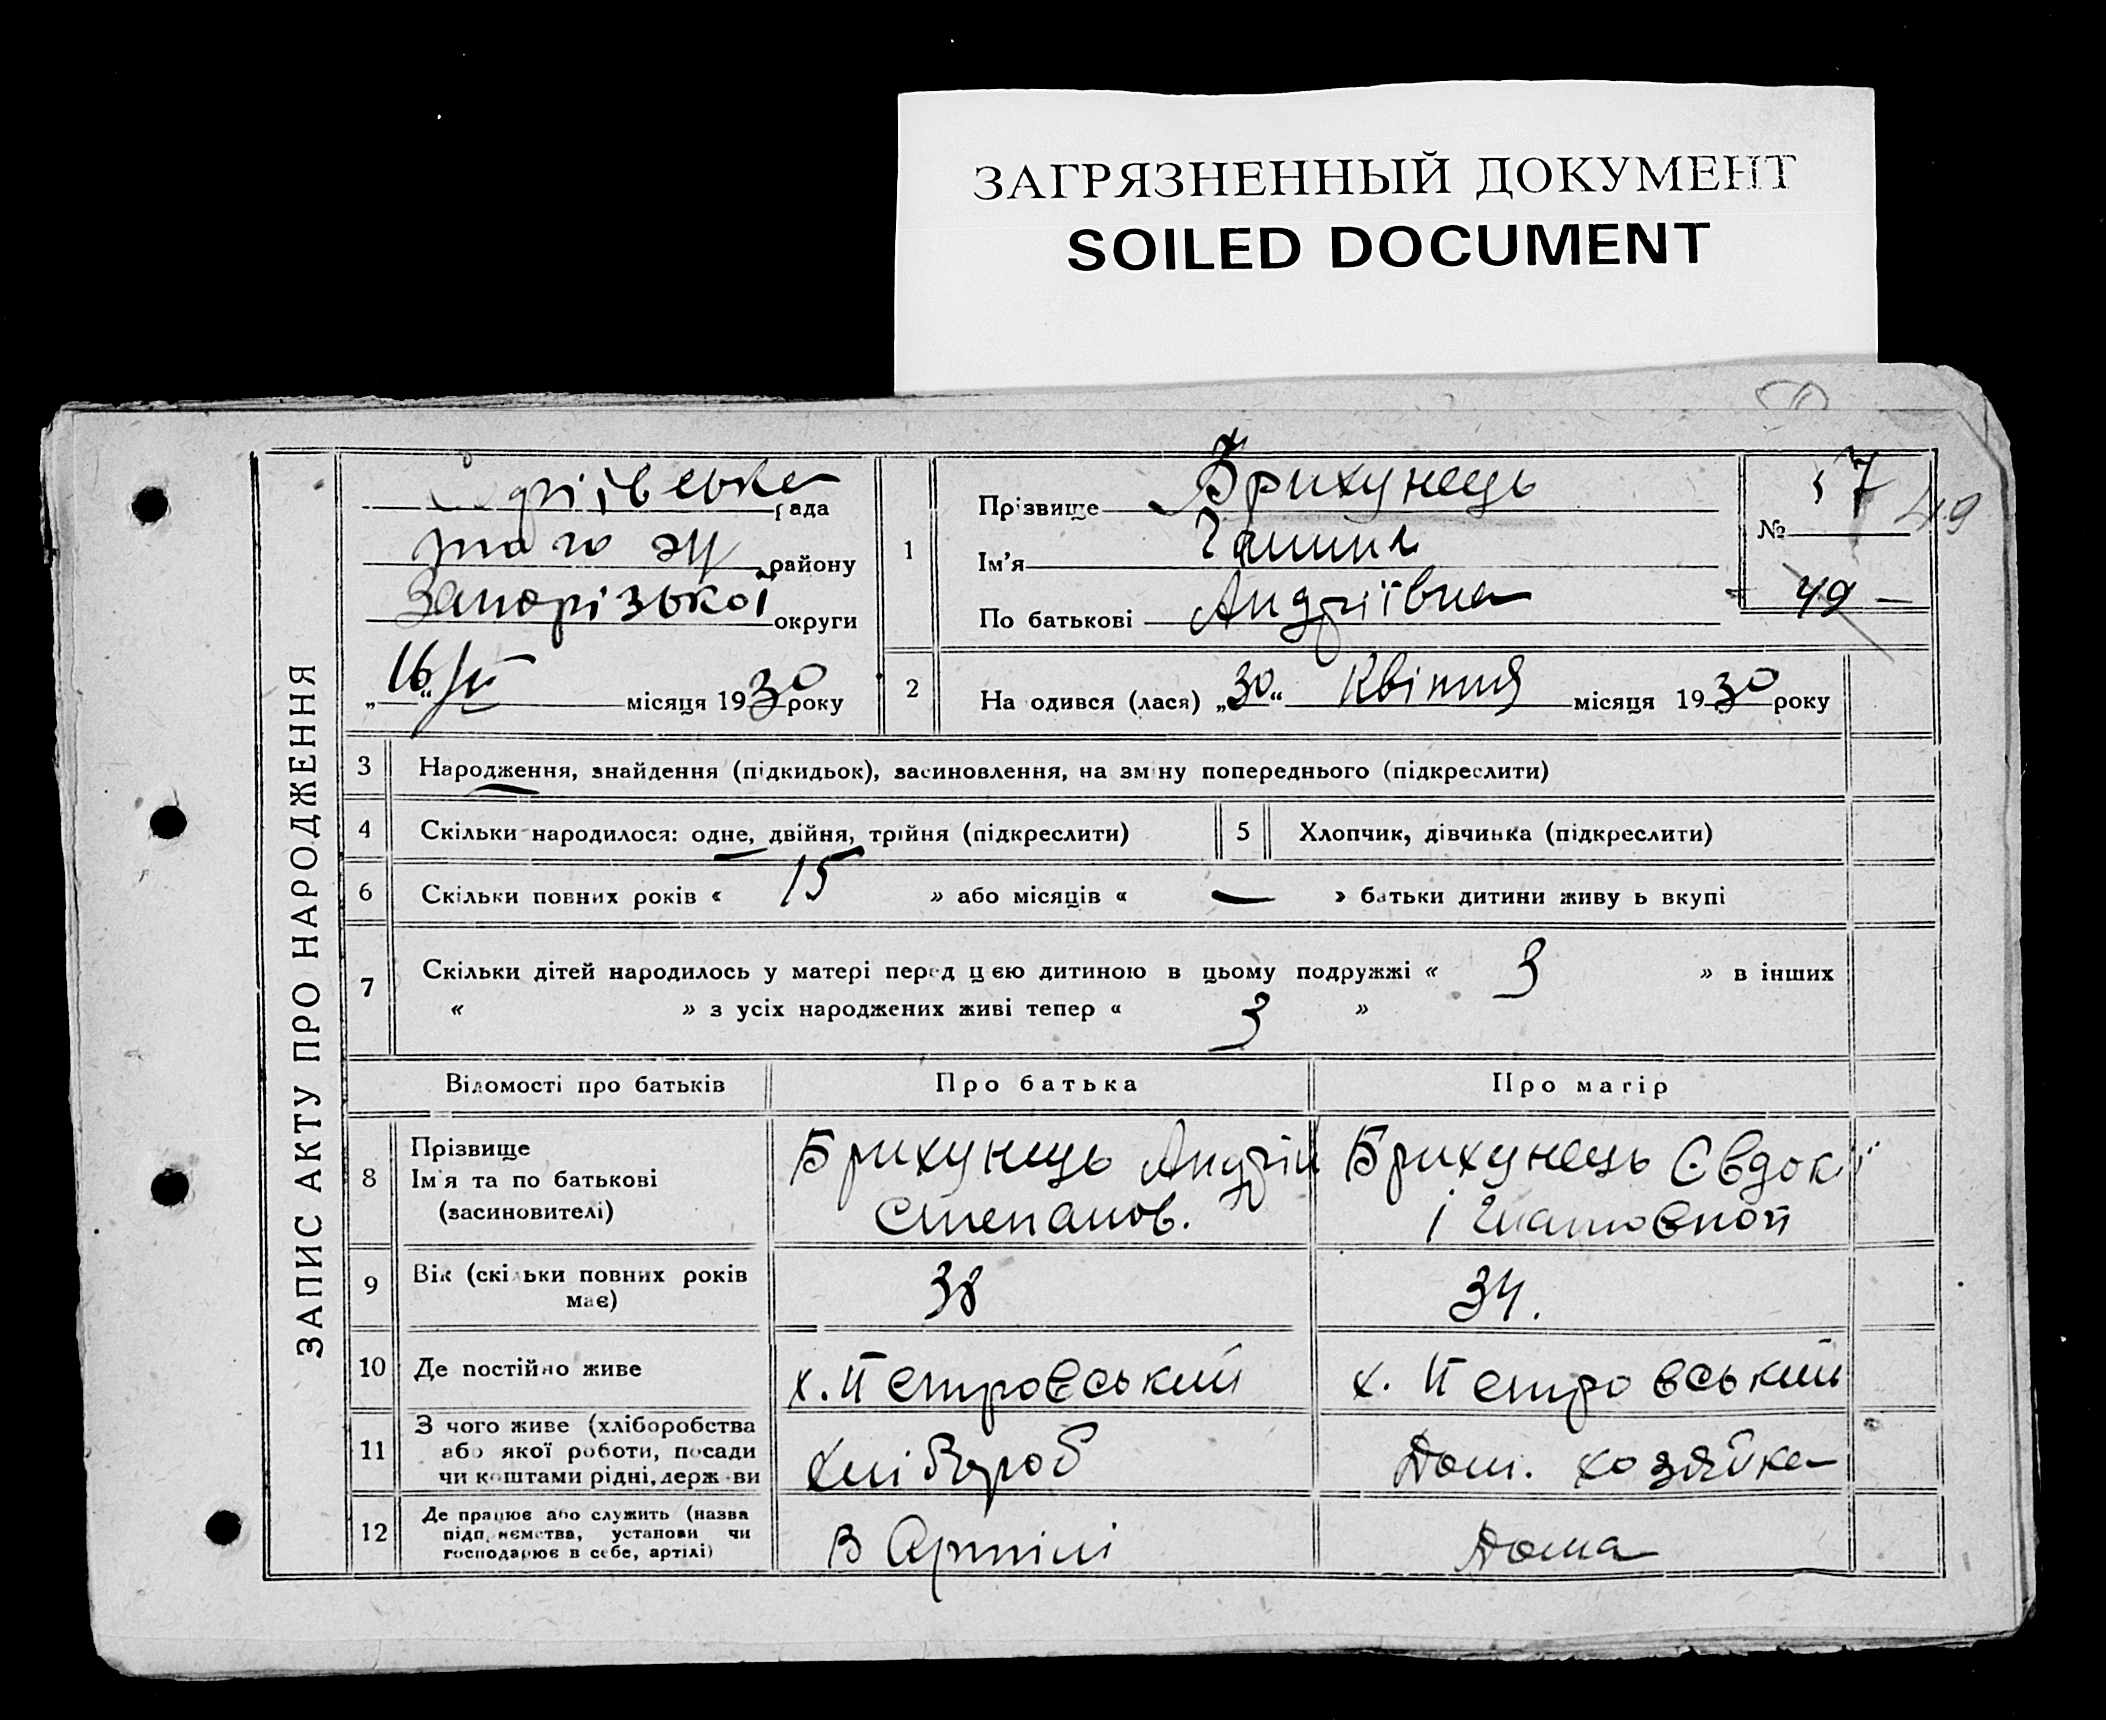 ЗАГРЯЗНЕННЫЙ ДОКУМЕНТ
SOILED DOCUMENT
ЗАПИС АКТУ ПРО НАРОДЖЕННЯ
рада
того ж району
Запорізької округи
„16“ місяця 1930 року
1
Прізвище Брихунець
Ім’я Галина
По батькові Андріївна
№ 37
49
49 –
2
На одився (лася) „30“ Квітня місяця 1930 року
3 Народження, знайдення (підкидьок), засиновлення, на зміну попереднього (підкреслити)
4 Скільки народилося: одне, двійня, трійня (підкреслити)
5 Хлопчик, дівчинка (підкреслити)
6 Скільки повних років « 15 » або місяців « — » батьки дитини живу ь вкупі
7 Скільки дітей народилось у матері перед цією дитиною в цьому подружжі « 3 » в інших
« » з усіх народжених живі тепер « 3 »
Відомості про батьків Про батька Про матір
8 Прізвище
Ім'я та по батькові
(засиновителі)
Брихунець Андрій
Степанов.
Брихунець Євдокії
Ігнатовной
9 Вік (скільки повних років
має)
38
34.
10 Де постійно живе
х. Петровський
х. Петровський
11 З чого живе (хліборобства
або якої роботи, посади
чи коштами рідні, держ ви
Хлібороб
Дом. хозяйка
12 Де працює або служить (назва
підприємства, установи чи
господарює в себе, артілі)
В Артілі
Дома